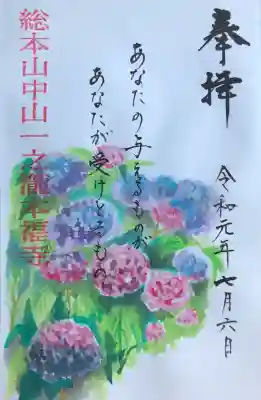 奉拝
令和元年七月六日
あなたの与えるものが
あなたが受けとるもの
総本山中山一之瀧本福寺